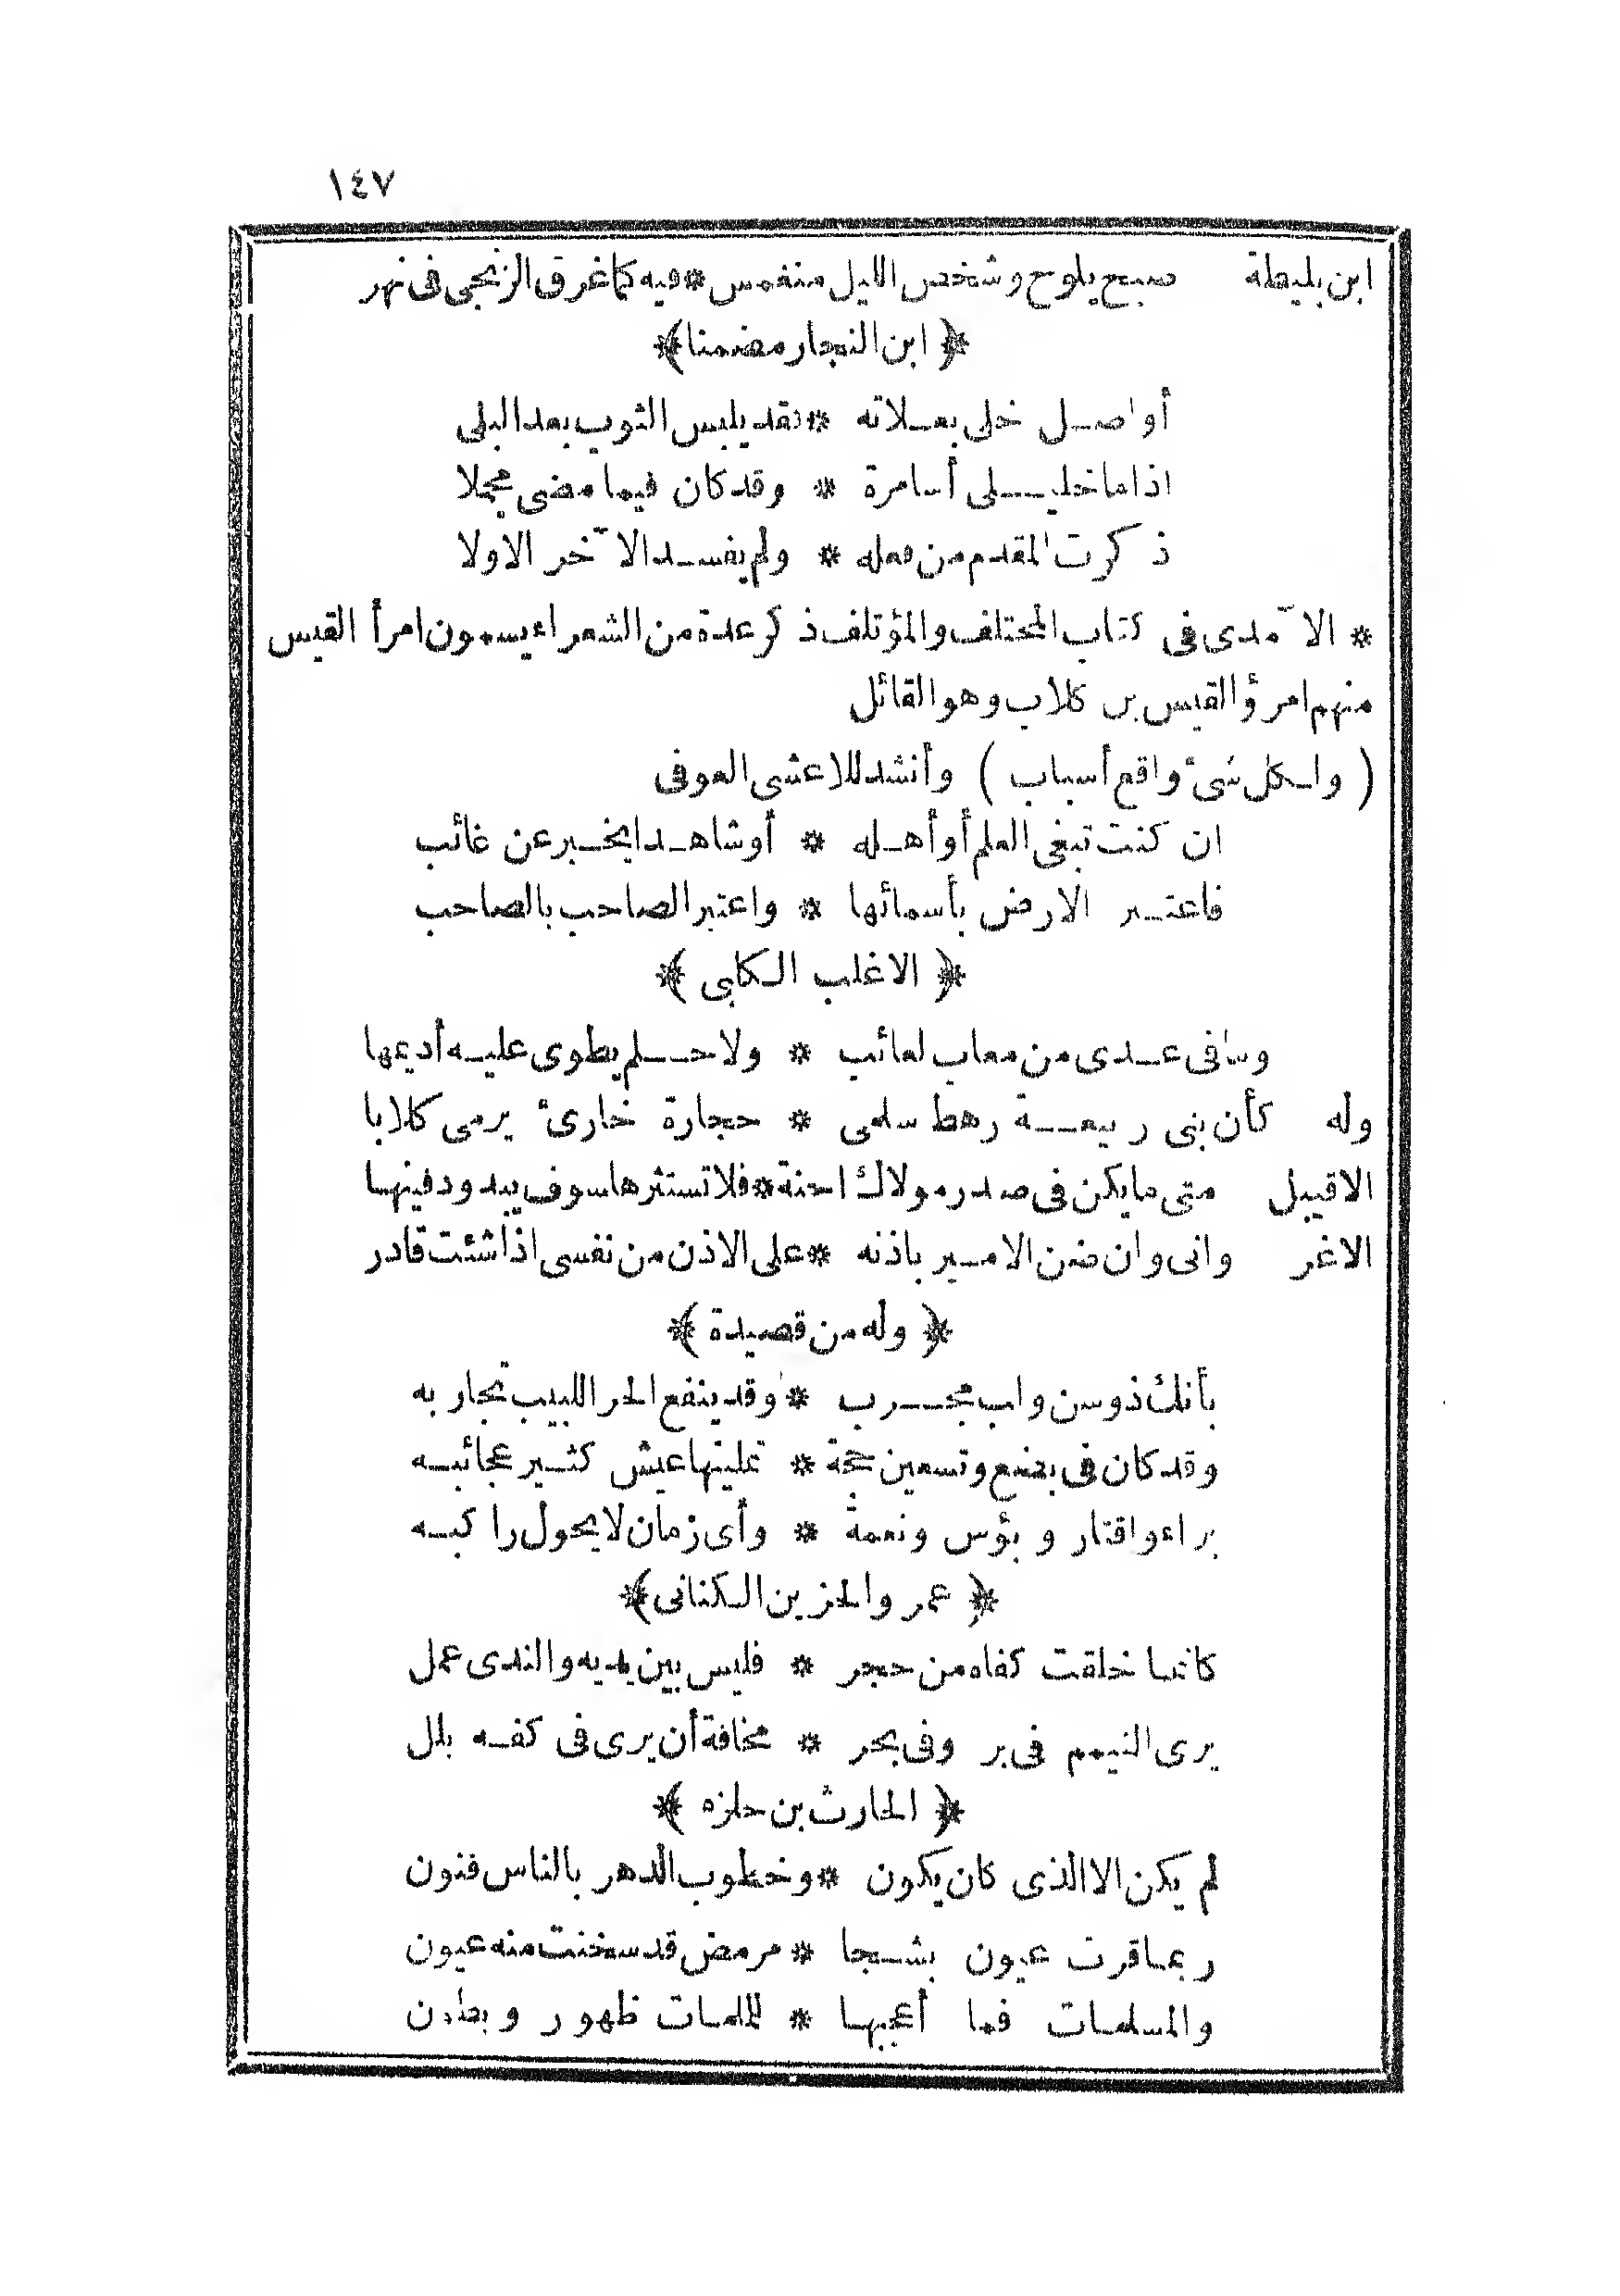 ١٤٧
ابن بليطة صبح يلوح وشخص الليل منغمس * فيه كما غرق الزنجى فى نهر
﴿ ابن النجار مضمنا ﴾
أواصل خلى بعلاته * فقد يلبس الثوب بعد البلى
اذا ما خليلى أسا مرة * وقد كان فيما مضى مجملا
ذكرت المقدم من فعله * ولم يفسد الآخر الاولا
* الآمدى فى كتاب المختلف والمؤتلف ذكر عدة من الشعراء يسمون امرأ القيس
منهم امرؤ القيس بن كلاب وهو القائل
( ولكل شىء واقع أسباب ) وأنشد للاعشى العوفى
ان كنت تبغى العلم أو أهله * أو شاهدا يخبر عن غائب
فاعتبر الارض بأسمائها * واعتبر الصاحب بالصاحب
﴿ الاغلب الكلبى ﴾
وما فى عدى من معاب لعائب * ولا حلم يطوى عليه أديمها
وله كأن بنى ربيعة رهط سلمى * حجارة خارئ يرمى كلابا
الاقيبل متى ما يكن فى صدر مولاك احنة * فلا تستثرها سوف يبدو دفينها
الاغر وانى وان ضن الامير باذنه * على الاذن من نفسى اذا شئت قادر
﴿ وله من قصيدة ﴾
بأنك ذو سن واب مجرب * وقد ينفع الحر اللبيب تجاربه
وقد كان فى بضع وتسعين حجة * تمليتها عيش كثير عجائبه
براء واقتار وبؤس ونعمة * وأى زمان لا يحول راكبه
﴿ عمر والحزين الكنانى ﴾
كانما خلقت كفاه من حجر * فليس بين يديه والندى عمل
يرى التيمم فى بر وفى بحر * مخافة أن يرى فى كفه بلل
﴿ الحارث بن حلزه ﴾
لم يكن الا الذى كان يكون * وخطوب الدهر بالناس فنون
ربما قرت عيون بشجا * مرمض قد سخنت منه عيون
والمسلمات فما أعجبها * للملمات ظهور وبطون